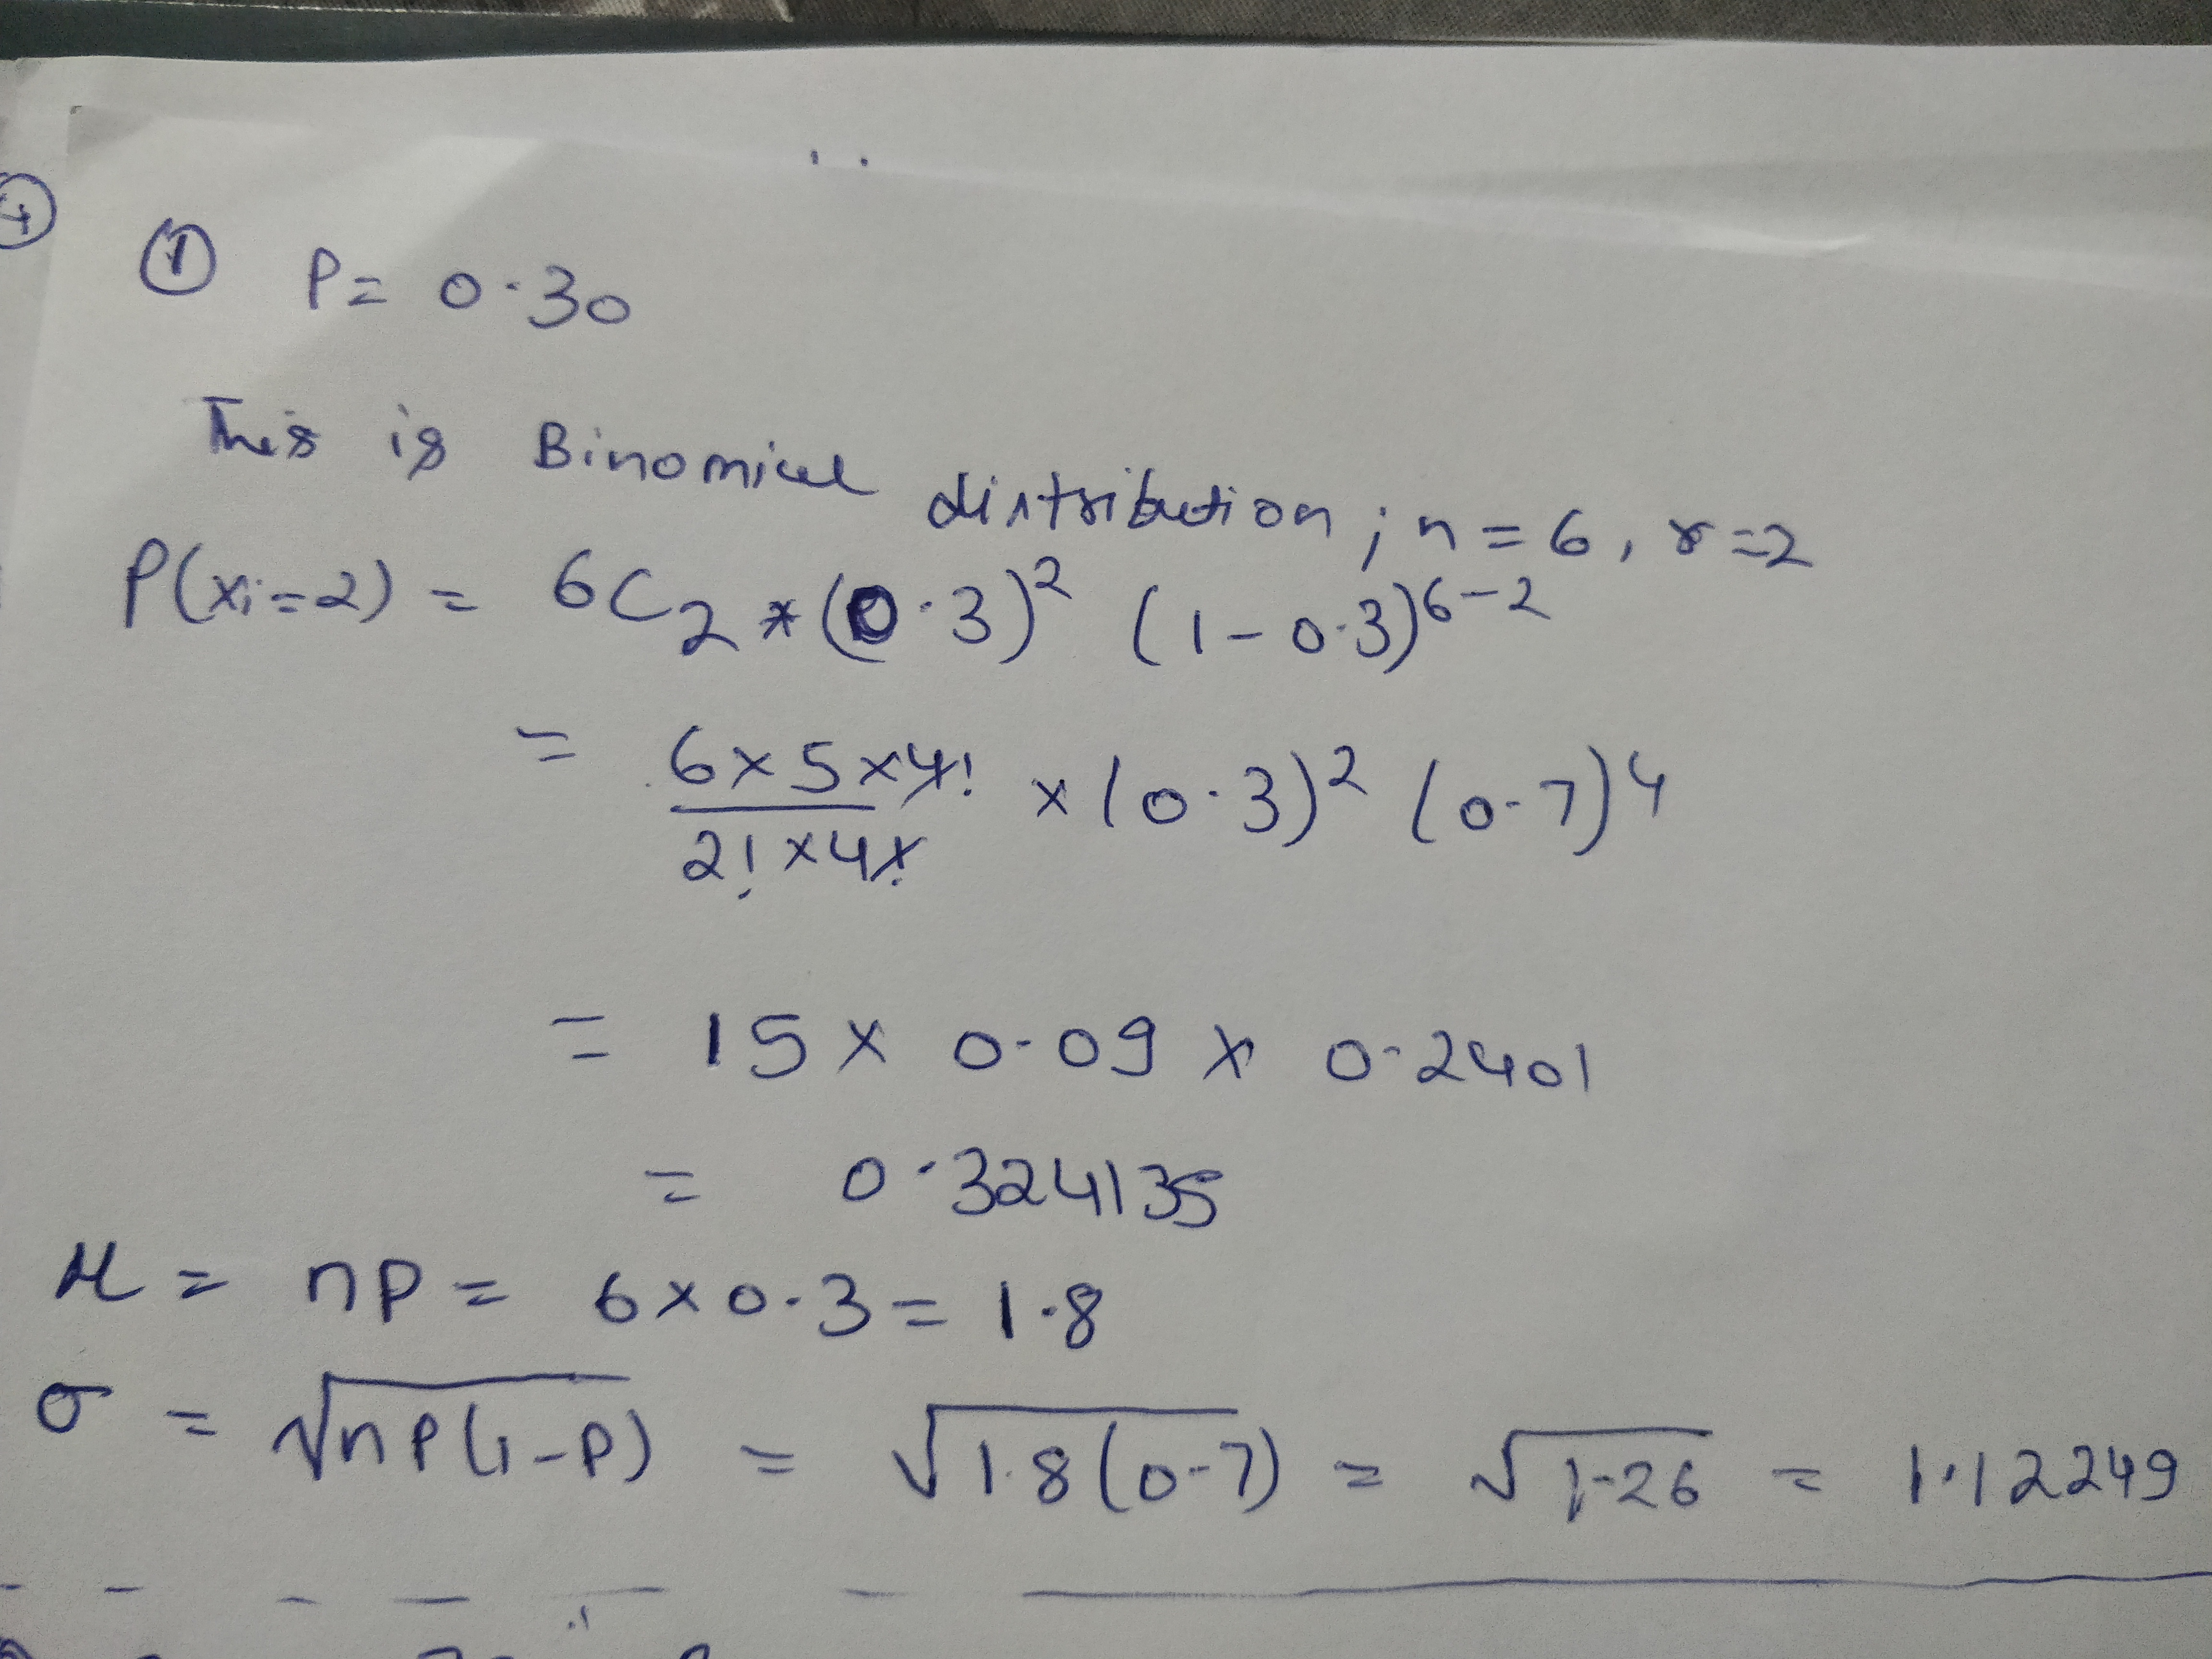 4
1 P = 0.30
This is Binomial distribution ; n = 6, r = 2
P(xi=2) = 6C2 * (0.3)^2 (1 - 0.3)^6-2
= 6 x 5 x 4! / 2! x 4! x (0.3)^2 (0.7)^4
= 15 x 0.09 x 0.2401
= 0.324135
μ = np = 6 x 0.3 = 1.8
σ = √nP(1-P) = √1.8(0.7) = √1.26 = 1.12249